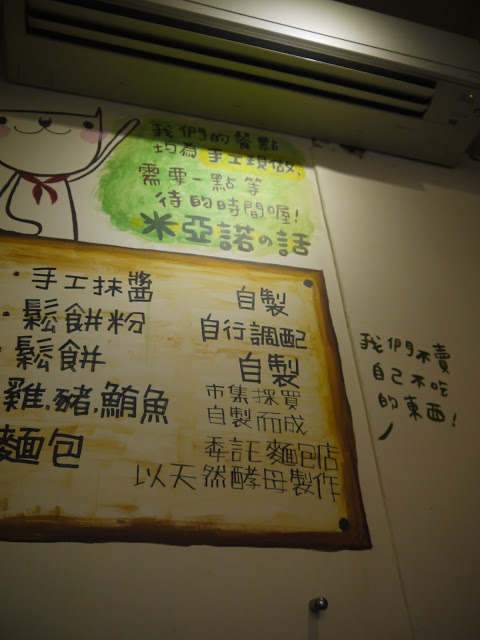 我們的餐點
均為手工現做,
需要一點等
待的時間喔!
米亞諾の話
·手工抹醬 自製
·鬆餅粉 自行調配
·鬆餅 自製
雞.豬.鮪魚 市集採買
自製而成
麵包 委託麵包店
以天然酵母製作
我們不賣
自己不吃
的東西!